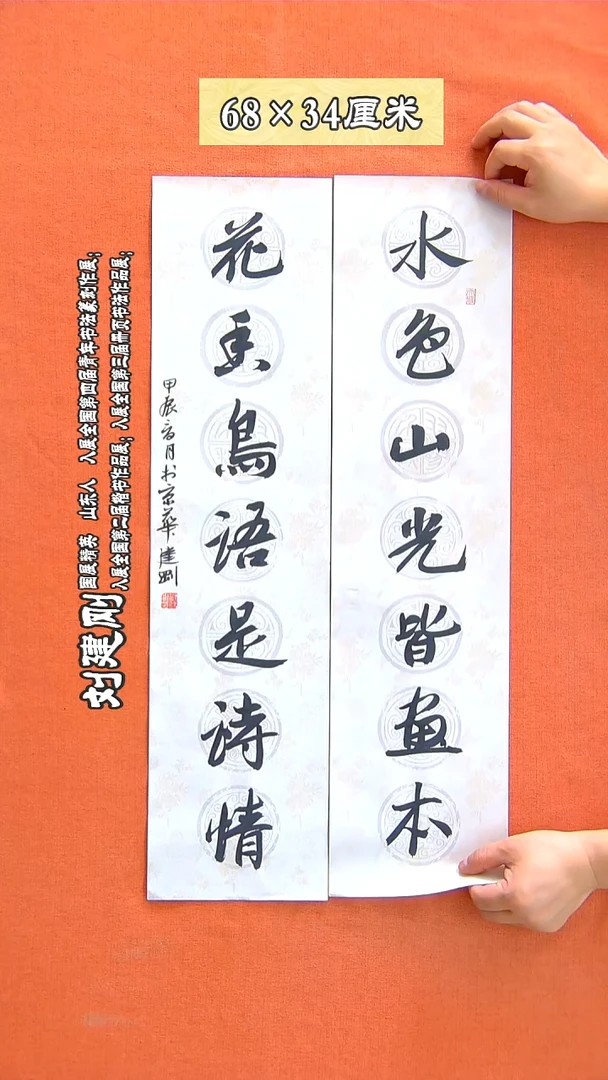 68×34厘米
水色山光皆画本
花香鳥语是詩情
甲辰言月书京華建刚
刘建刚
国展精英 山东人 入展全国第四届青年书法篆刻作展；
入展全国第二届楷书作品展；入展全国第三届册页书法作品展；